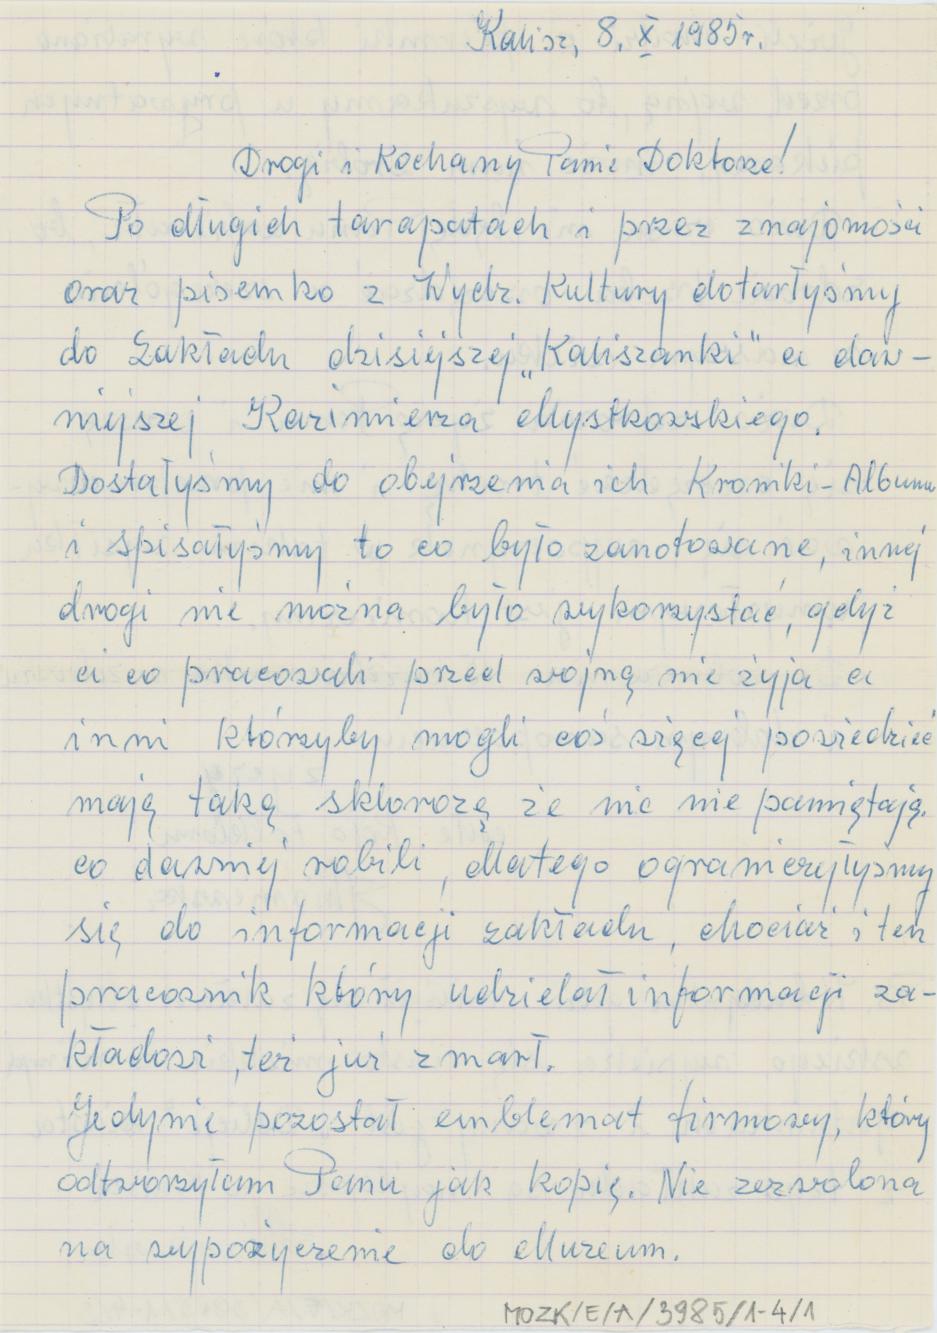 Kalisz, 8. X 1985r.
Drogi i Kochany Panie Doktorze!
Po długich tarapatach i przez znajomości
oraz pisemko z Wydz. Kultury dotarłyśmy
do Zakładu dzisiejszej „Kaliszanki" a daw-
niejszej Kazimierza Mystkowskiego.
Dostałyśmy do obejrzenia ich Kroniki-Albumu
i spisałyśmy to co było zanotowane, innej
drogi nie można było wykorzystać, gdyż
ci co pracowali przed wojną nie żyją a
inni którzyby mogli coś więcej powiedzieć
mają taką sklorozę że nic nie pamiętają.
co dawniej robili, dlatego ograniczyłyśmy
się do informacji zakładu, chociaż i ten
pracownik który udzielał informacji za-
kładowi, też już zmarł.
Jedynie pozostał emblemat firmowy, który
odtworzyłam Panu jak kopię. Nie zezwolono
na wypożyczenie do Muzeum.
MOZK/E/A/3985/1-4/1